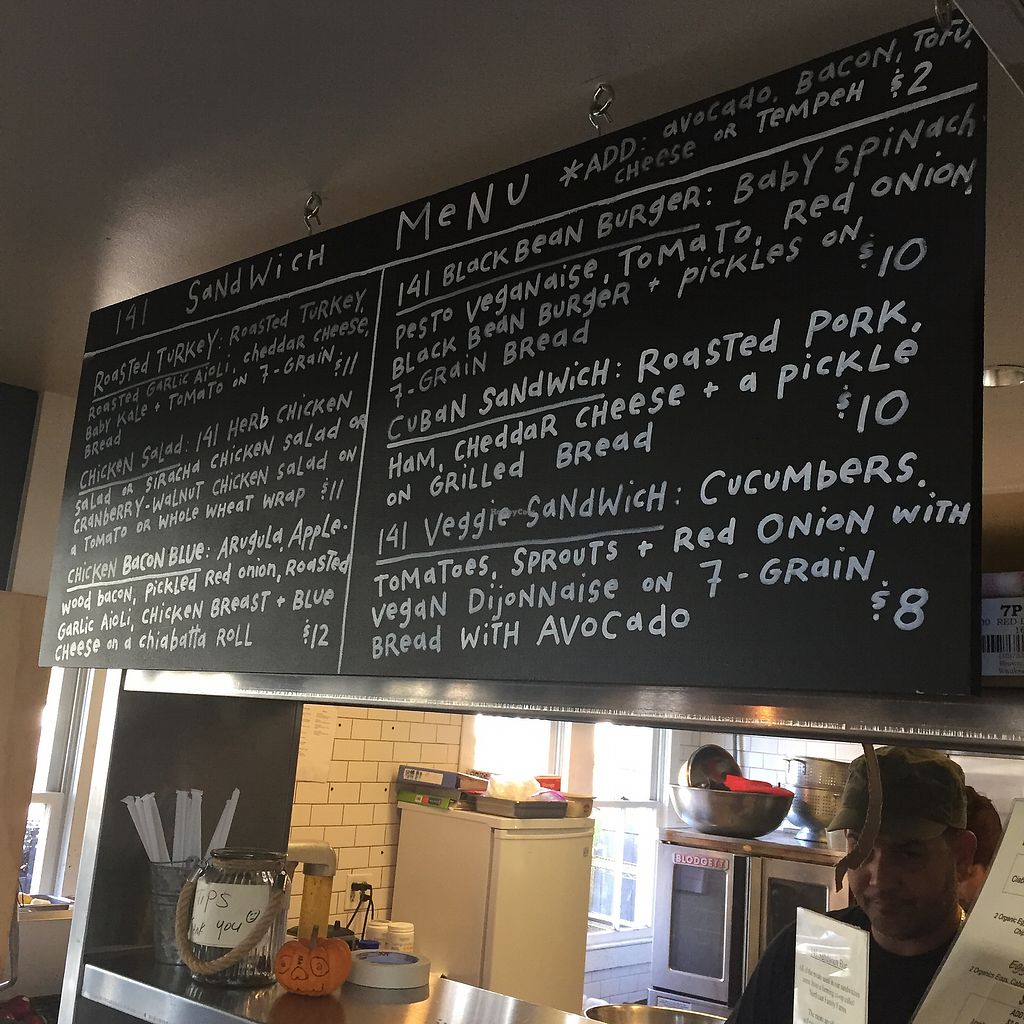 141 SANDWICH MENU *ADD: AVOCADO, BACON, TOFU,
CHEESE OR TEMPEH $2
ROASTED TURKEY: ROASTED TURKEY,
ROASTED GARLIC AIOLI, CHEDDAR CHEESE,
BABY KALE + TOMATO ON 7-GRAIN $11
BREAD
CHICKEN SALAD: 141 HERB CHICKEN
SALAD OR SIRACHA CHICKEN SALAD OR
CRANBERRY-WALNUT CHICKEN SALAD ON
A TOMATO OR WHOLE WHEAT WRAP $11
CHICKEN BACON BLUE: ARUGULA, APPLE-
WOOD BACON, PICKLED RED ONION, ROASTED
GARLIC AIOLI, CHICKEN BREAST + BLUE
CHEESE ON A CHIABATTA ROLL $12
141 BLACK BEAN BURGER: BABY SPINACH
PESTO VEGANAISE, TOMATO, RED ONION,
BLACK BEAN BURGER + PICKLES ON
7-GRAIN BREAD $10
CUBAN SANDWICH: ROASTED PORK,
HAM, CHEDDAR CHEESE + A PICKLE
ON GRILLED BREAD $10
141 VEGGIE SANDWICH: CUCUMBERS,
TOMATOES, SPROUTS + RED ONION WITH
VEGAN DIJONNAISE ON 7-GRAIN
BREAD WITH AVOCADO $8
HappyCow
7P
RED
BLODGETT
TIPS
YOU
2 Organic